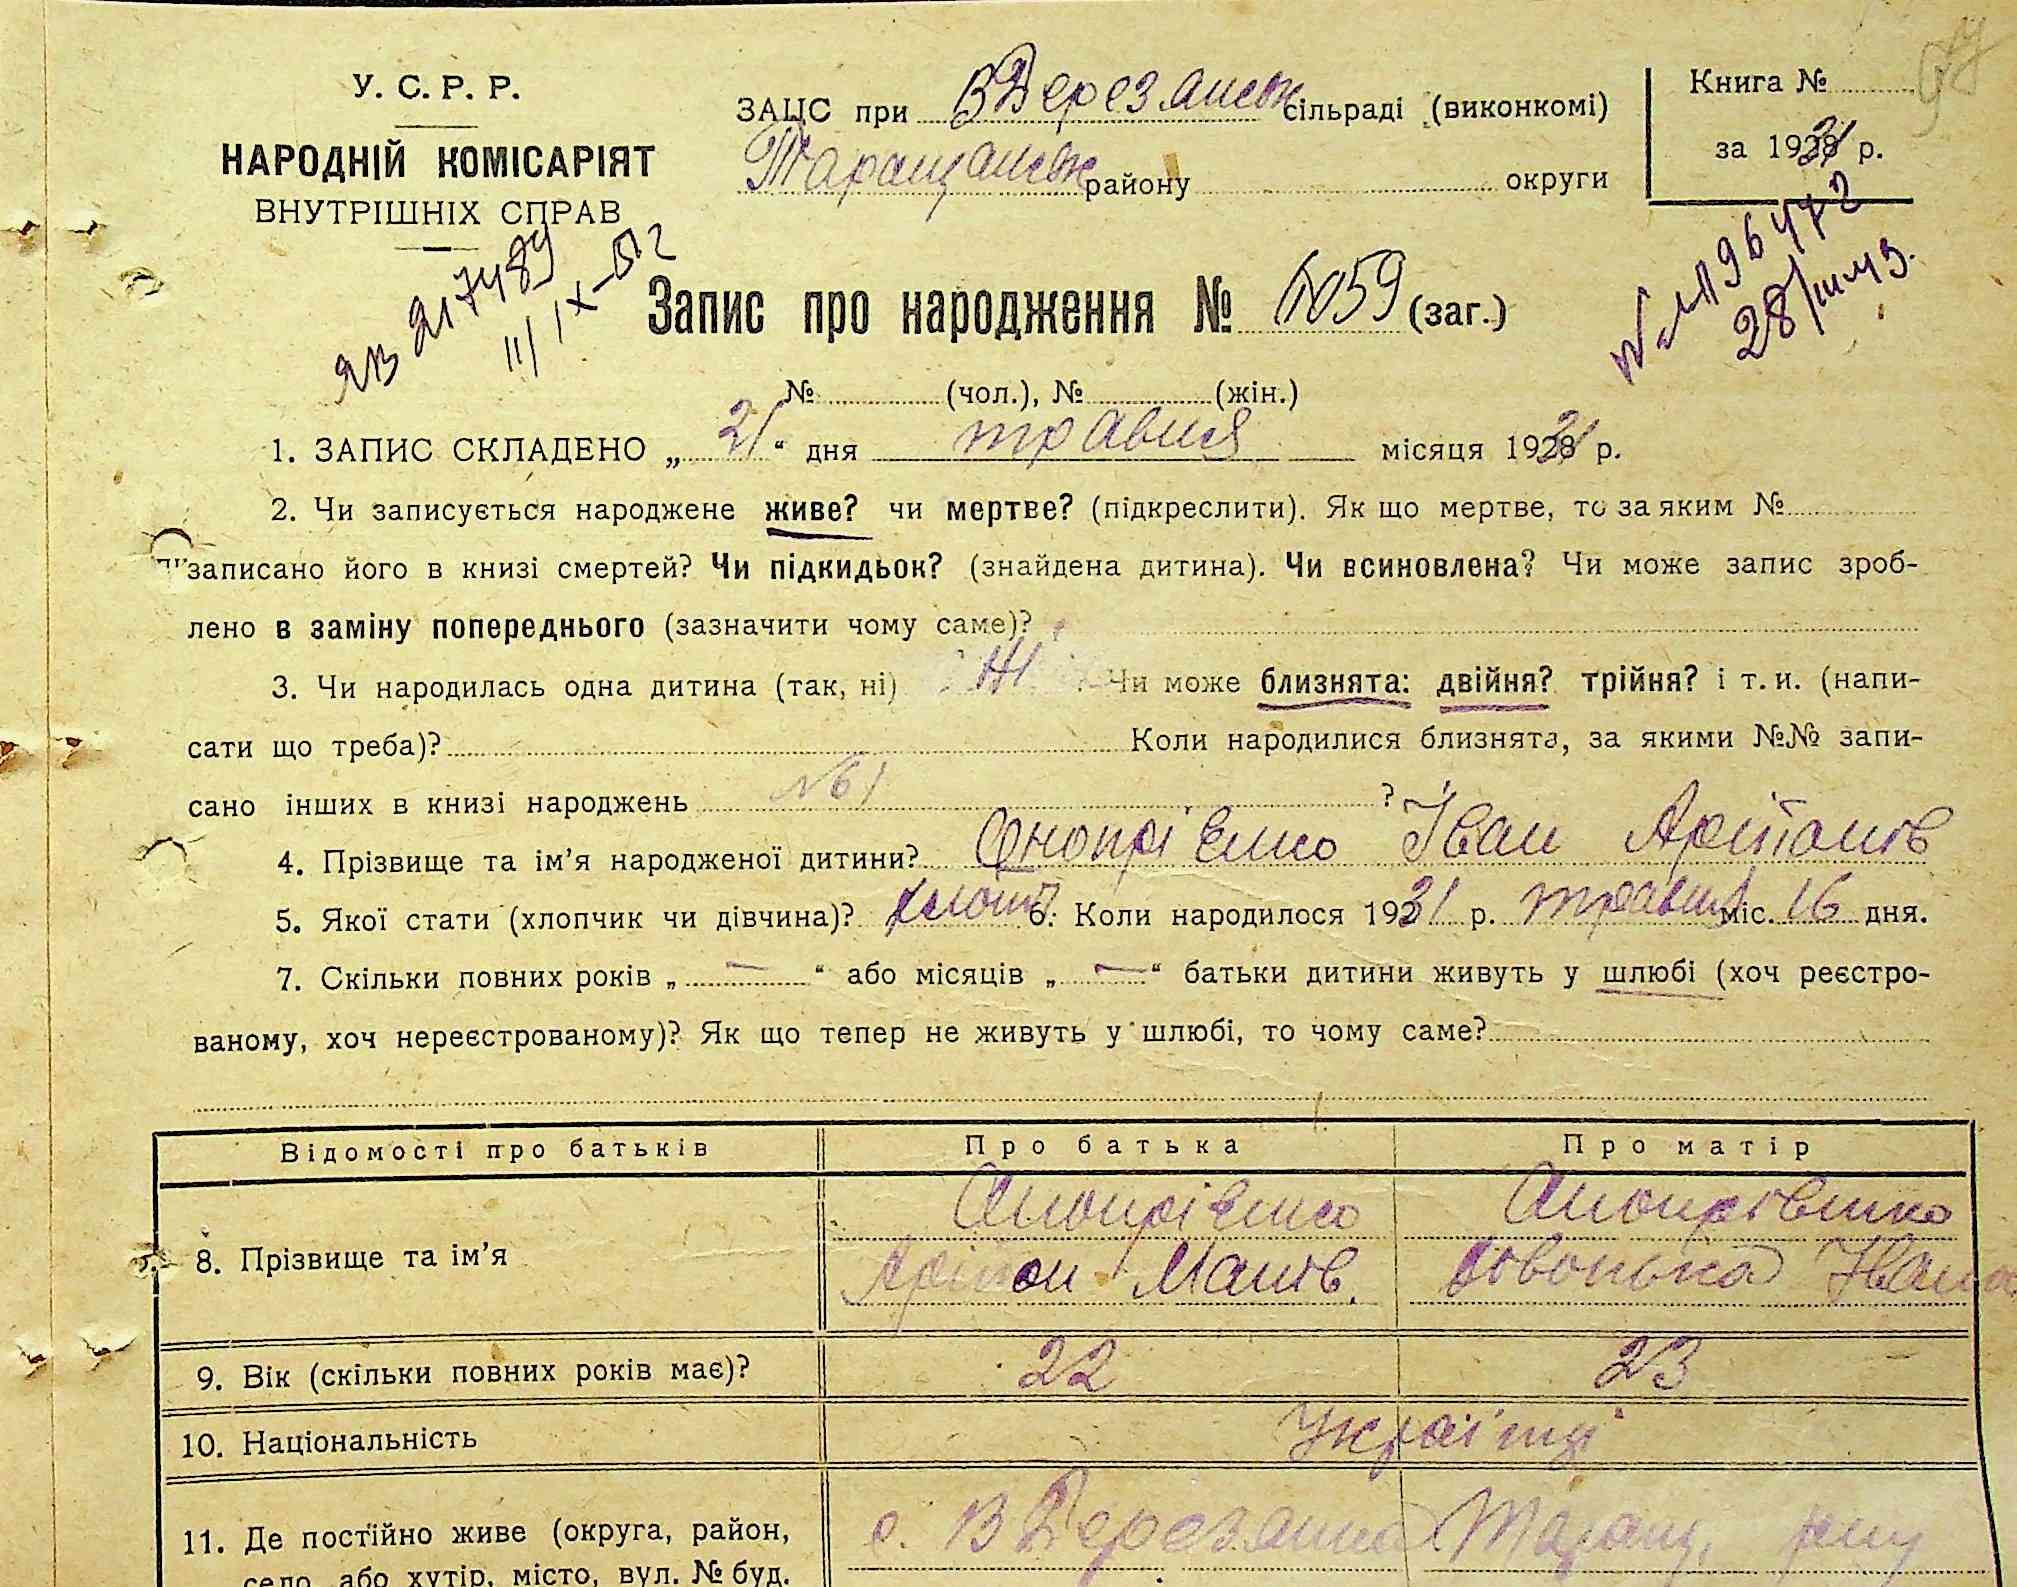 У. С. Р. Р.
НАРОДНІЙ КОМІСАРІЯТ
ВНУТРІШНІХ СПРАВ
ЗАЦС при В Березанськ сільраді (виконкомі)
Таращанськ району округи
Книга №
за 1931 р.
ЯВ 217489
11/IX-51 г
196472
28/III 43.
Запис про народження № 059 (заг.)
№ (чол.), № (жін.)
1. ЗАПИС СКЛАДЕНО „ 21 “ дня травня місяця 1931 р.
2. Чи записується народжене живе? чи мертве? (підкреслити). Як що мертве, то за яким №
записано його в книзі смертей? Чи підкидьок? (знайдена дитина). Чи всиновлена? Чи може запис зроб-
лено в заміну попереднього (зазначити чому саме)?
3. Чи народилась одна дитина (так, ні) Чи може близнята: двійня? трійня? і т. и. (напи-
сати що треба)? Коли народилися близнята, за якими №№ запи-
сано інших в книзі народжень №61 ?
4. Прізвище та ім’я народженої дитини? Онопрієнко Іван Арітонів
5. Якої стати (хлопчик чи дівчина)? хлопч 6. Коли народилося 1931 р. травня міс. 16 дня.
7. Скільки повних років „ — “ або місяців „ — “ батьки дитини живуть у шлюбі (хоч реєстро-
ваному, хоч нереєстрованому)? Як що тепер не живуть у шлюбі, то чому саме?
Відомості про батьків Про батька Про матір
8. Прізвище та ім’я Онопрієнко Онопрієвнко
Арітон Манів. Явдоська Івана
9. Вік (скільки повних років має)? 22 23
10. Національність Українці
11. Де постійно живе (округа, район, с. В Березанка Таращ. рну
село, або хутір, місто, вул. № буд.